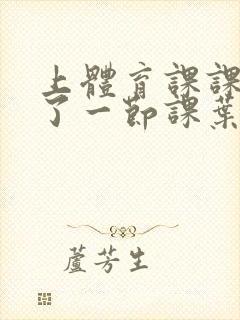 上體育課課
了一節課葉
蘆芳生